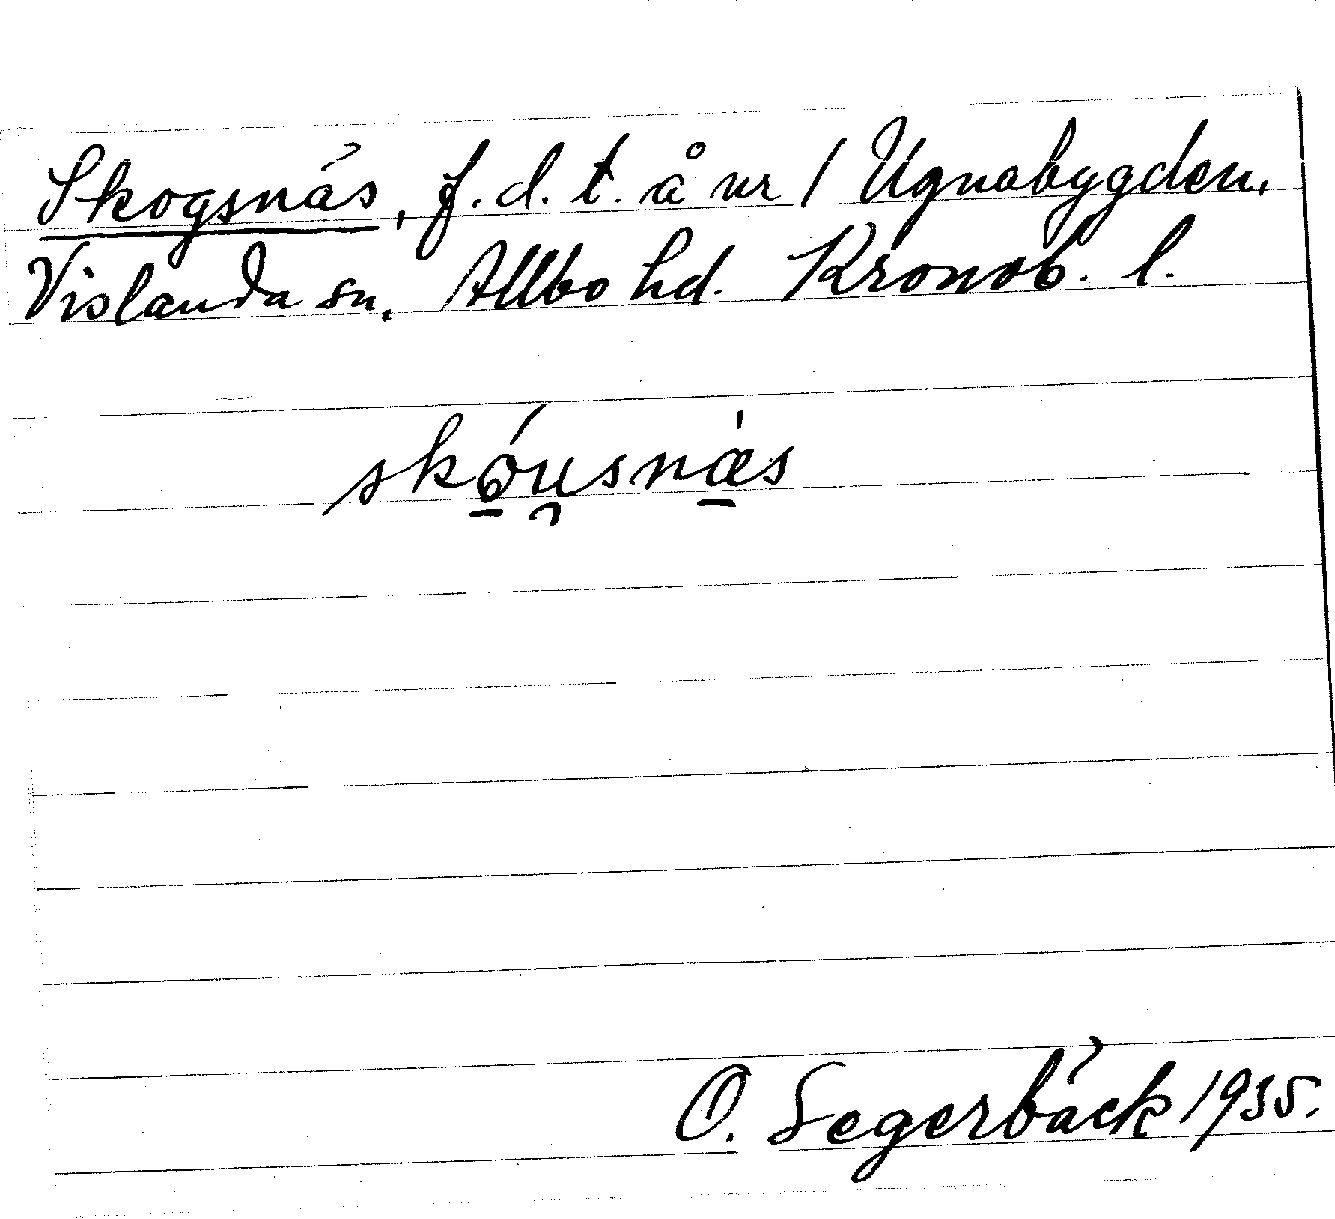 Skogsnäs, f.d.t. å nr 1 Ugnabygden,
Vislanda sn, Allbo hd. Kronob. l.
skóu̯snæ̀s
O. Segerbäck 1935.